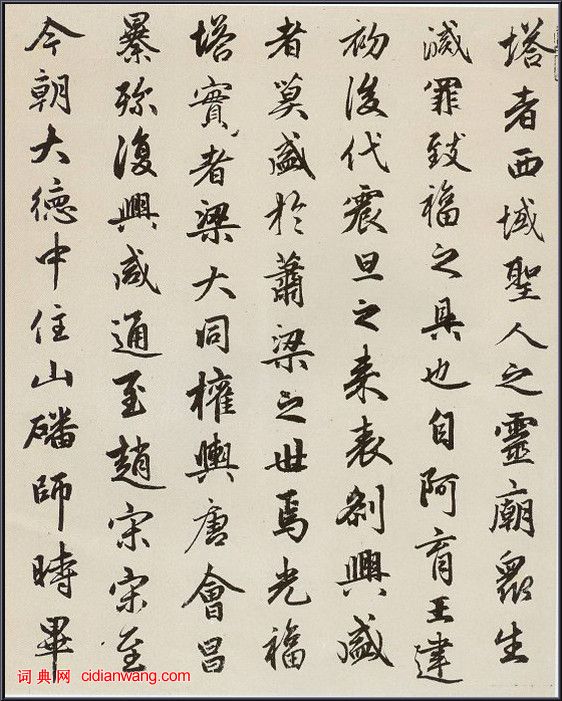 塔者西域聖人之靈廟眾生
滅罪致福之具也自阿育王建
初後代震旦之来表刹興盛
者莫盛於蕭梁之世焉光福
塔實者梁大同權輿唐會昌
暴殄復興咸通至趙宋宋至
今朝大德中住山磻師時畢
词典网 cidianwang.com